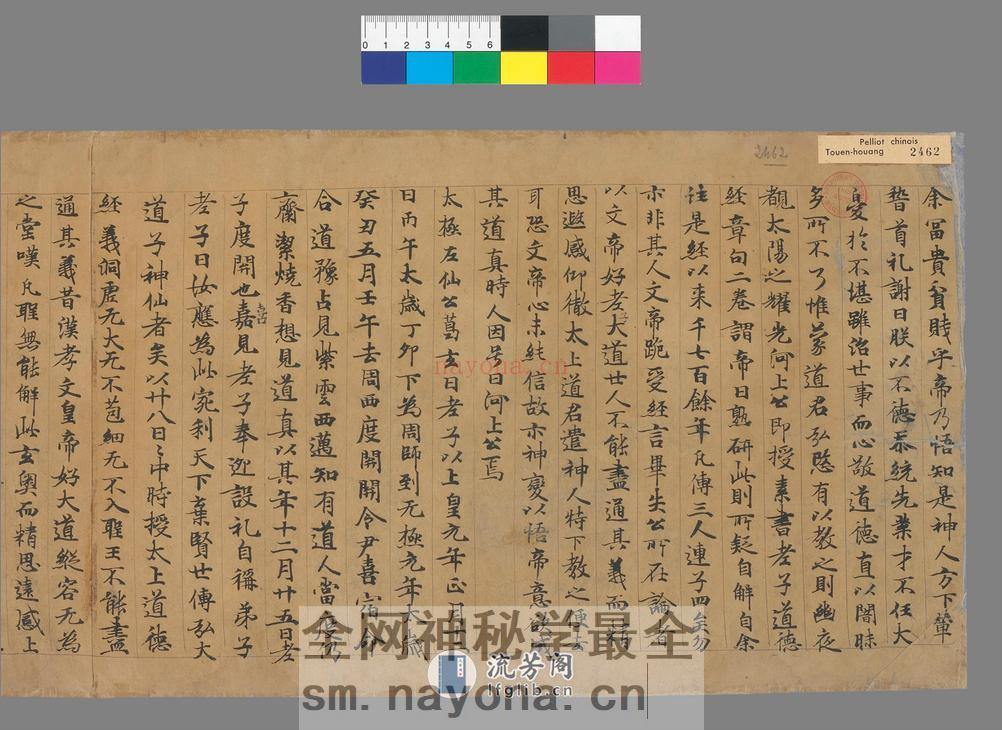 0 1 2 3 4 5 6
Pelliot chinois
Touen-houang 2462
2462
余冨貴貧賤乎帝乃悟知是神人方下輦
稽首礼謝曰朕以不德忝統先業才不任大
憂於不堪雖治世事而心敬道德直以闇昧
多所不了惟蒙道君弘愍有以教之則幽夜
覩太陽之耀光河上公即授素書老子道德
經章句二卷謂帝曰熟研此則所疑自解自余
注是經以來千七百餘年凡傳三人連子四矣勿
示非其人文帝跪受經言畢失公所在論者
以文帝好老大道世人不能盡通其義而精
思遐感仰徹太上道君遣神人特下教之便去
耳恐文帝心未純信故示神變以悟帝意欲
其道真時人因号曰河上公焉
太極左仙公葛玄曰老子以上皇元年正月十二
日丙午太歲丁卯下為周師到无極元年太歲
癸丑五月壬午去周西度關關令尹喜宿命
合道豫占見紫雲西邁知有道人當度仍
齋潔燒香想見道真以其年十二月廿五日老
子度關也嘉見老子奉迎設礼自稱弟子
老子曰汝應為此宛利天下棄賢世傳弘大
道子神仙者矣以廿八日日中時授太上道德
經義洞虛无大无不苞細无不入聖王不能盡
通其義昔漢孝文皇帝好大道縱容无為
之堂嘆凡聖無能解此玄奧而精思遠感上
nayona.cn
全网神秘学最全
流芳阁
lfglib.cn
sm.nayona.cn